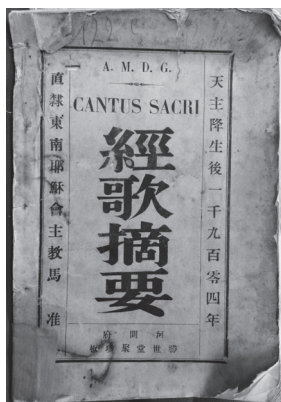 A. M. D. G.
CANTUS SACRI
天主降生後一千九百零四年
經歌摘要
直隸東南耶穌會主教馬 准
河間府
勝世堂聚珍板